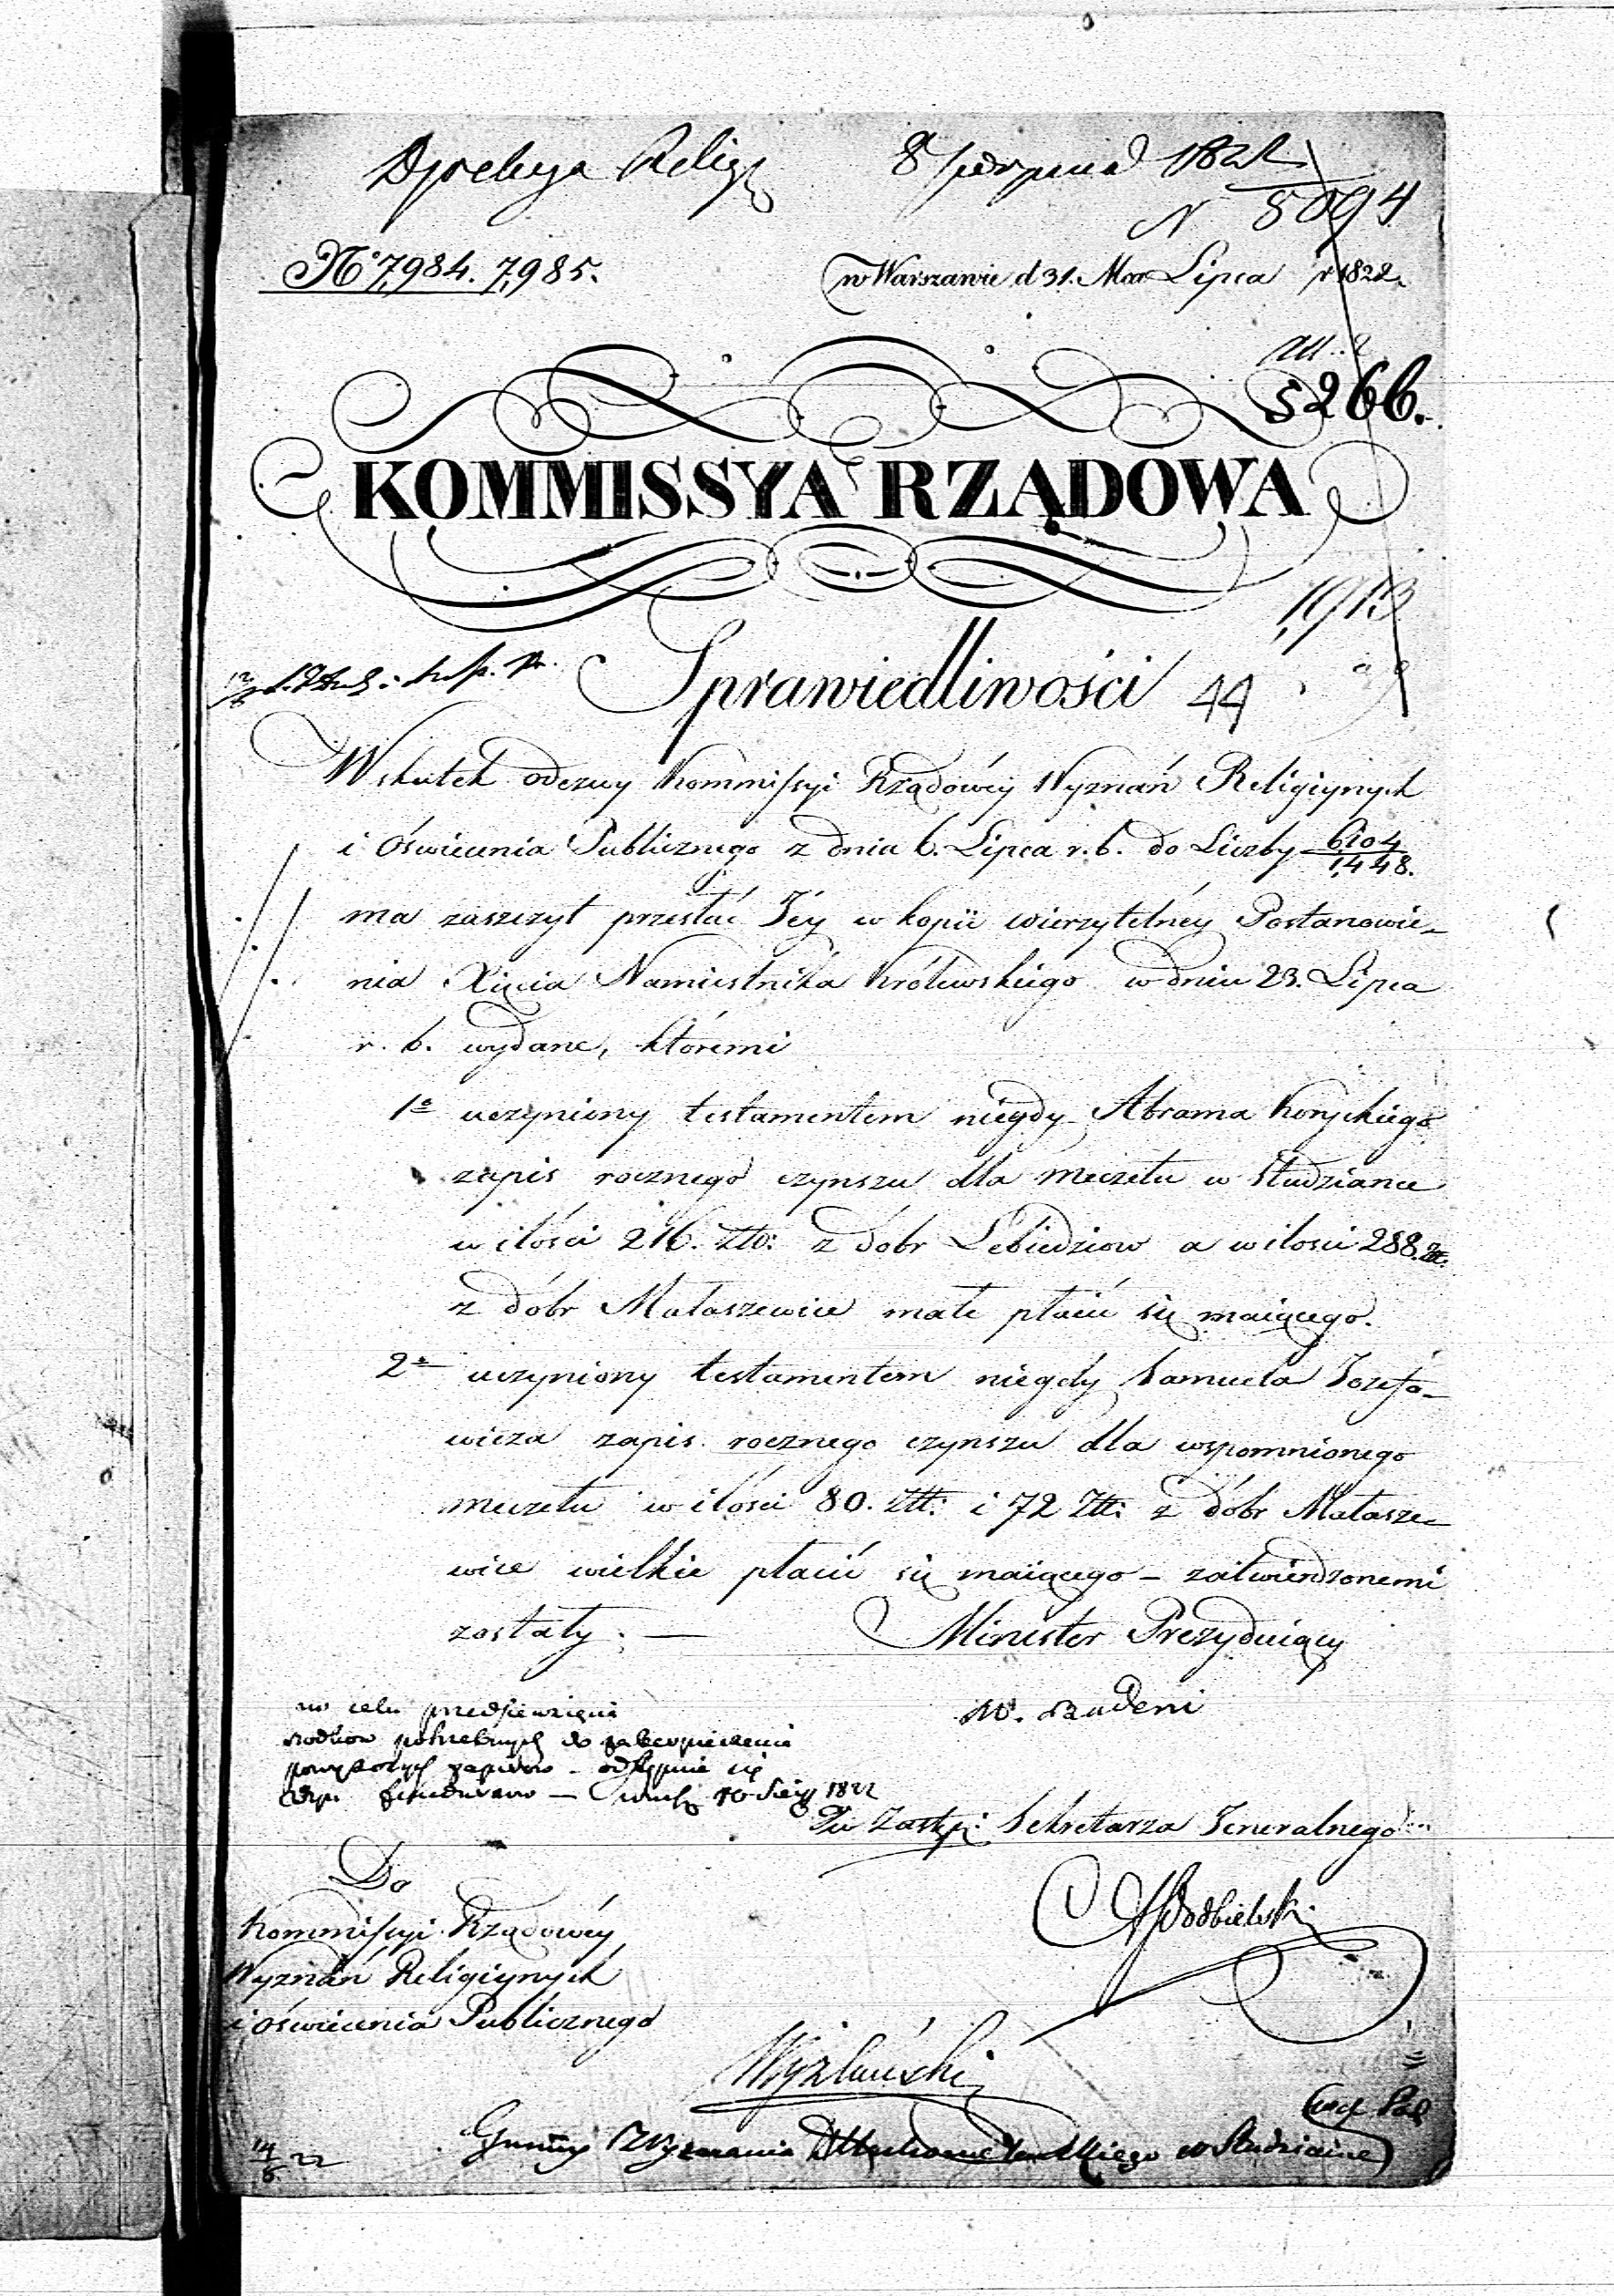 8 Sierpnia 1822
N 5094
Nº 7,984. 7,985.
w Warszawie d 31. Mca Lipca r 1822.
5266.
KOMMISSYA RZĄDOWA
1,913
Sprawiedliwości 44
Wskutek odezwy Kommissyi Rządowéy Wyznań Religiynych
i Oświecenia Publicznego z dnia 6. Lipca r. b. do Liczby 6104/1,448.
ma zaszczyt przesłać Jéy w kopii wierzytelnéy Postanowie-
nia Xięcia Namiestnika Królewskiego w dniu 23. Lipca
r. b. wydane, któremi
1º uczyniony testamentem niegdy Abrama Koryckiego
zapis rocznego czynszu dla meczetu w Studziance
w ilości 216. Złł: z dóbr Lebiedziow a w ilości 288. Złł.
z dóbr Małaszewice małe płacić się maiącego.
2º uczyniony testamentem niegdy Samuela Jozefo-
wicza zapis rocznego czynszu dla wspomnionego
meczetu w ilości 80. Złł: i 72 Złł: z dóbr Małasze-
wice wielkie płacić się maiącego – zatwierdzonemi
zostały. —
Minister Prezyduiący
M. Badeni
w celu przedsięwzięcia
srodkow potrzebnych do zabezpieczenia
powyższych zapisow – odstąpić się
funduszow — 10 Sierp 1822
W Zastęp: Sekretarza Jeneralnego
Podbielski
Do
Kommissyi Rządowéy
Wyznań Religiynych
i Oświecenia Publicznego
Gminy Wyznania Machometańskiego w Studziance
14/8 22